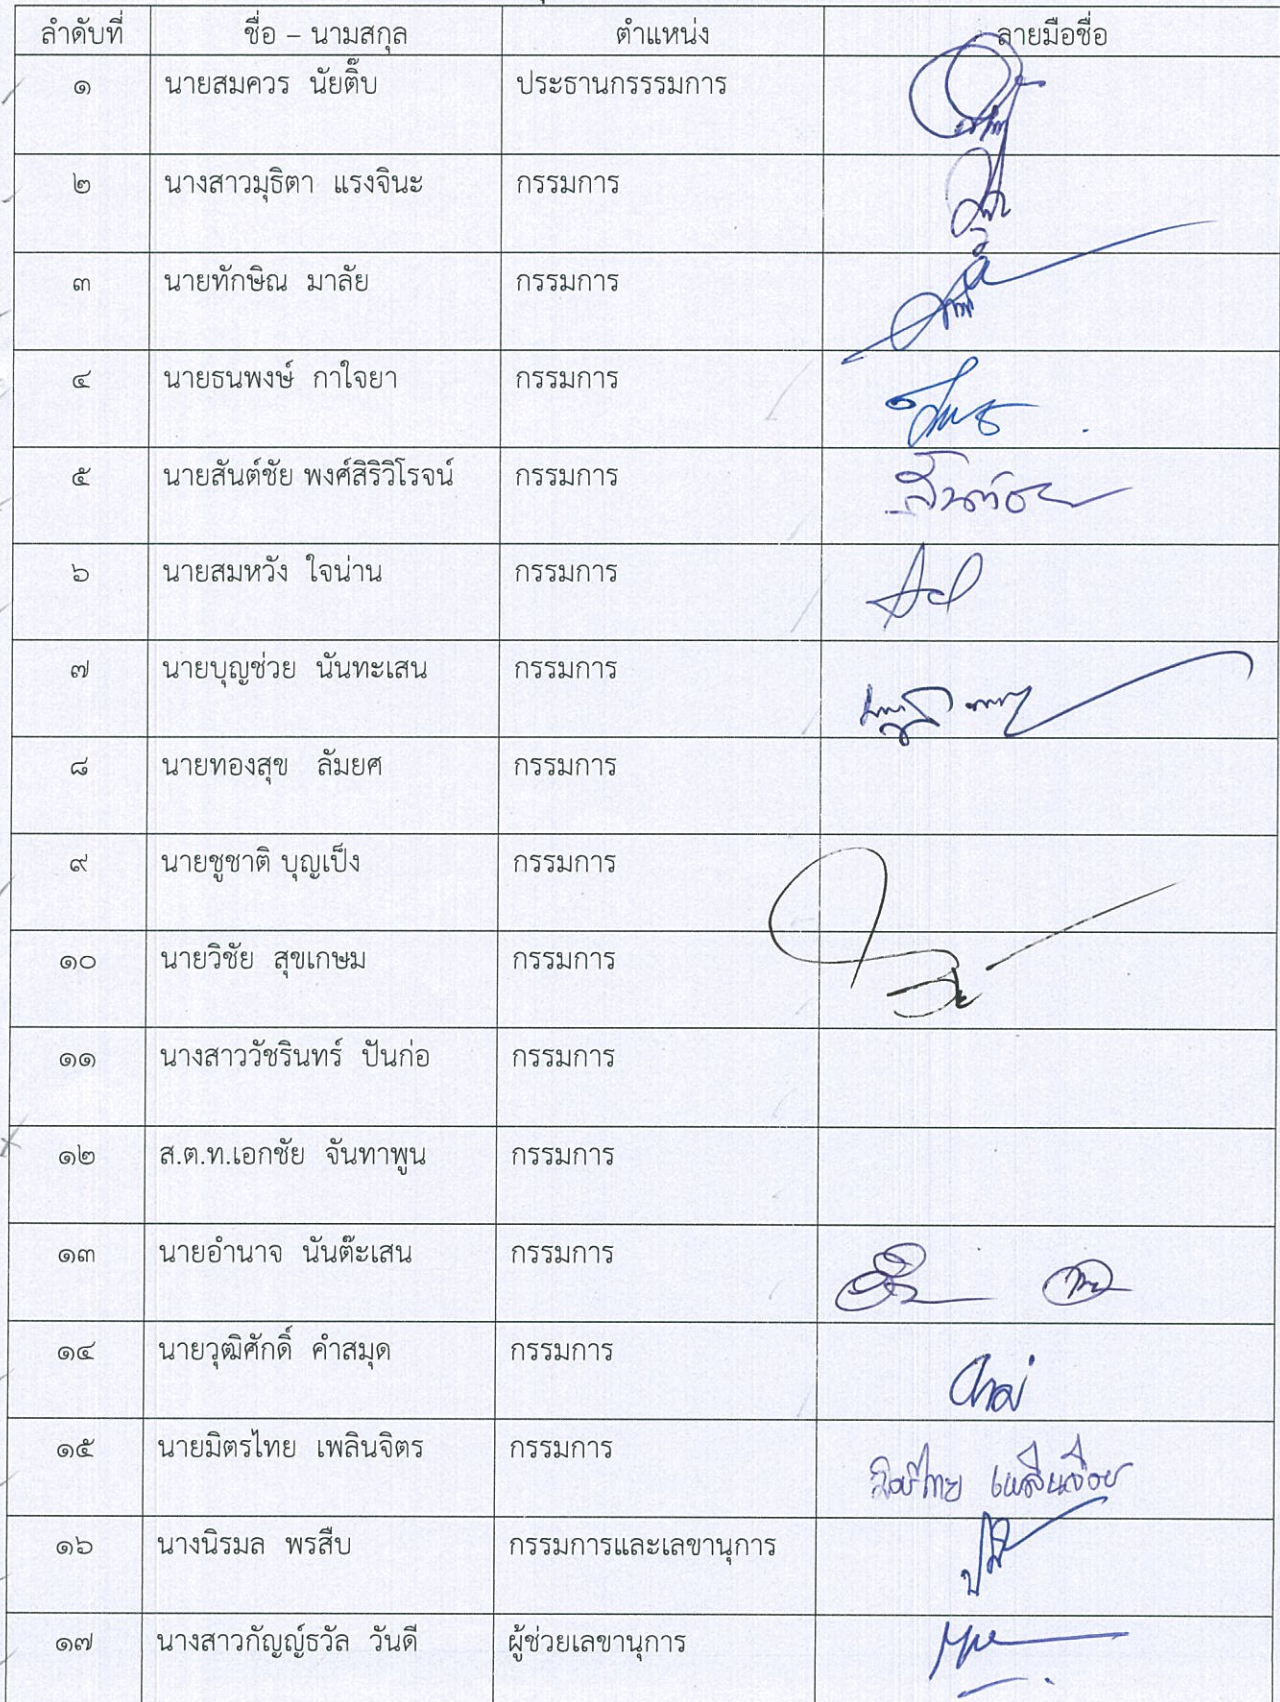 ลำดับที่ ชื่อ – นามสกุล ตำแหน่ง ลายมือชื่อ
๑ นายสมควร นัยติ๊บ ประธานกรรรมการ
๒ นางสาวมุธิตา แรงจินะ กรรมการ
๓ นายทักษิณ มาลัย กรรมการ
๔ นายธนพงษ์ กาใจยา กรรมการ
๕ นายสันต์ชัย พงศ์สิริวิโรจน์ กรรมการ
๖ นายสมหวัง ใจน่าน กรรมการ
๗ นายบุญช่วย นันทะเสน กรรมการ
๘ นายทองสุข ลัมยศ กรรมการ
๙ นายชูชาติ บุญเป็ง กรรมการ
๑๐ นายวิชัย สุขเกษม กรรมการ
๑๑ นางสาววัชรินทร์ ปันก่อ กรรมการ
๑๒ ส.ต.ท.เอกชัย จันทาพูน กรรมการ
๑๓ นายอำนาจ นันต๊ะเสน กรรมการ
๑๔ นายวุฒิศักดิ์ คำสมุด กรรมการ
๑๕ นายมิตรไทย เพลินจิตร กรรมการ
๑๖ นางนิรมล พรสืบ กรรมการและเลขานุการ
๑๗ นางสาวกัญญ์ธวัล วันดี ผู้ช่วยเลขานุการ